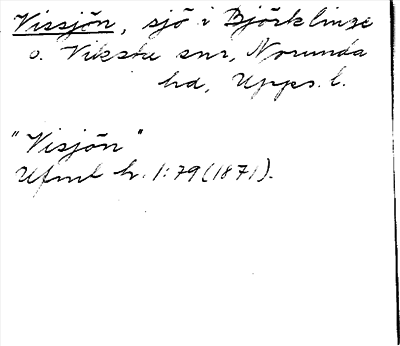 Vissjön, sjö i Björklinge
o. Viksta snr, Norunda
hd, Upps. l.
"Visjön"
Ufml h. 1:79 (1871).